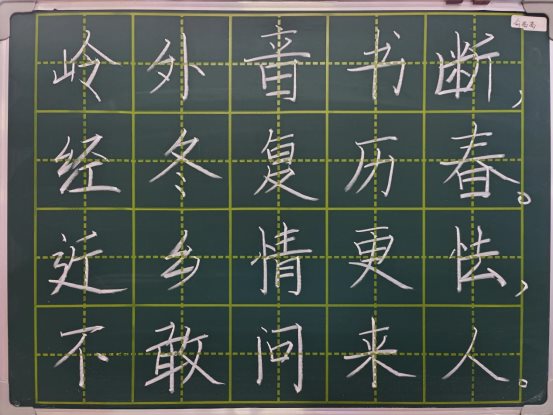 岭外书断，
经冬复历春。
近乡情更怯，
不敢问来人。